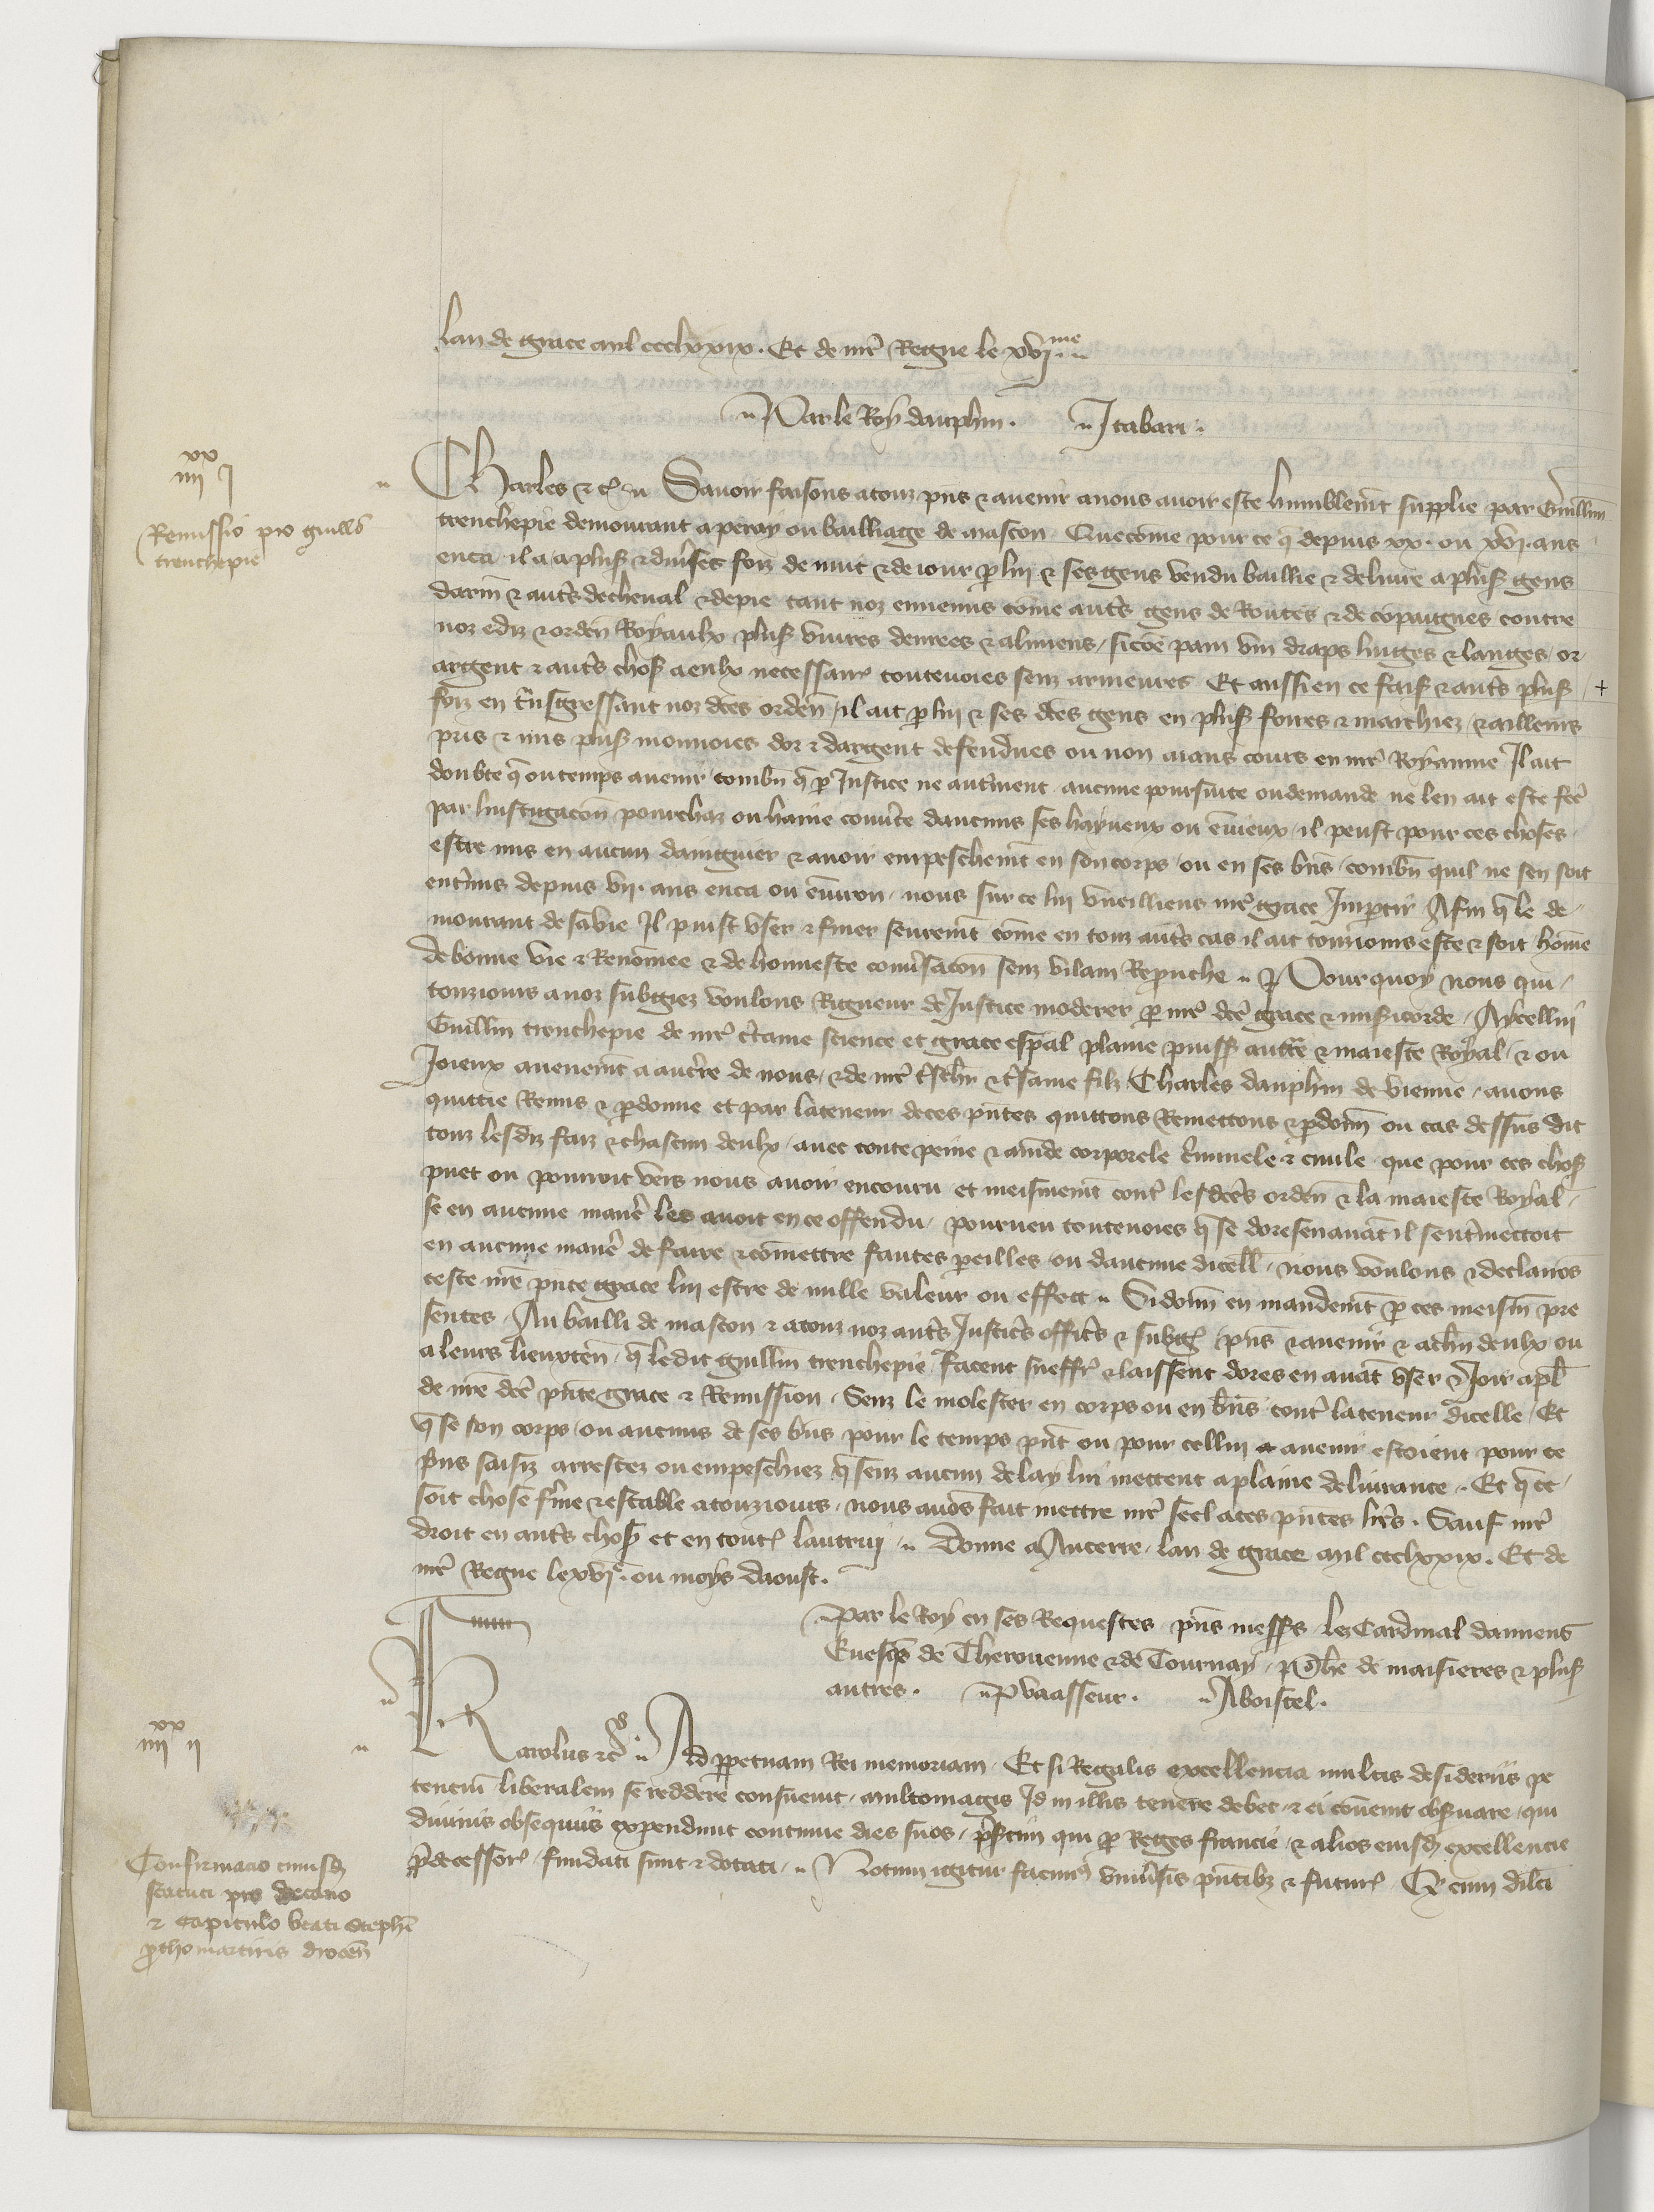 lan de grace mil ccclxxix. Et de nrē Regne le xvjme
Par le Roy dauphin. J tabari.
xx
iiij j
Remissio pro guillō
trenchepie
Charles &c̄ Sauoir faisons a touz pn̄s & auenir a nous auoir este humblemt̄ supplie par Guillin̄
trenchepie demourant a peray ou bailliage de mascon Que cōme pour ce q̄ depuis xx. ou xvj. ans
enca il a a plus̄ & diuses foiz de nuit & de iour ꝑ lui & ses gens vendu baillie & deliure a plus̄ gens
darm̄ & aut̄s de cheual & de pie tant noz ennemis cōme aut̄s gens de Routes & de cōpaignes contre
noz ediz & orden̄ Royaulx plus̄ viures denrees & alimens / sicōe pain vin draps linges & langes or
argent & aut̄s chos̄ a eulx necessair̄ toutevoies senz armeures Et aussi en ce fais̄ & aut̄s plus̄ +
foiz en tn̄sgressant noz dc̄es orden̄ / il ait ꝑ lui & ses dc̄es gens en plus̄ foires & marchiez / & ailleurs
pris & mis plus̄ monnoies dor & dargent defendues ou non aians cours en nrē Royaume Il ait
doubte q̄ ou temps auenir / combn̄ q̄ ꝑ Justice ne autm̄ent aucune poursuite ou demande ne len ait este fc̄e
par linstigacōn pourchaz ou haine couūte daucuns ses hayneux ou enuieux / il peust pour ces choses
estre mis en aucun dangier & auoir empeschemt̄ en son corps / ou en ses bn̄s / combn̄ quil ne sen soit
ent̄mis depuis vij. ans enca ou enuiron / nous sur ce lui vueilliens nrē grace Imꝑtir Afin q̄ le de
mourant de sa vie Il puist vser & finer seuremt̄ cōme en touz aut̄s cas il ait touziours este & soit hōme
de bonne vie & Renōmee & de honneste conūsacōn senz vilain Reprouche Pour quoy nous qui
touziours a noz subgiez voulons Rigueur de Justice moderer ꝑ nrē dc̄e grace & misicorde / A ycellui
Guillin trenchepie de nrē ct̄aine science et grace esp̄al plaine puiss̄ auctē & maieste Royal / & ou
Joieux auenemt̄ a autr̄e de nous / & de nrē tr̄schr̄ & tr̄same filz Charles dauphin de vienne / auons
quittie Remis & ꝑdonne et par la teneur de ces pn̄tes quittons Remettons & ꝑdonn̄ ou cas dessus dit
touz lesdiz faiz & chascun deulx / auec toute peine & amēde corporele cr̄iminele & ciuile que pour ces chos̄
puet ou pourroit vers nous auoir encouru et meismemt̄ cont̄ lesdc̄es orden̄ & la maieste Royal
se en aucune manē les auoit en ce offendu / pourueu toutevoies q̄ se doresenauāt il sent̄mettoit
en aucune manē de faire & cōmettre fautes ꝑeilles / ou daucune dicell̄ / nous voulons & declarōs
ceste nrē pn̄te grace lui estre de nulle valeur ou effect Si donn̄ en mandemt̄ ꝑ ces meism̄ pre
sentes / Au bailli de mascon & a touz noz aut̄s Justic̄s offic̄s & subḡ pn̄s & auenir & a chun̄ deulx ou
a leurs lieuxten̄ / q̄ ledit guillin̄ trenchepie / facent sueffr̄ & laissent dores en auāt vser & Joir a pl̄
de nrē dc̄e pn̄te grace & Remission / Senz le molester en corps ou en bn̄s cont̄ la teneur dicelle / Et
q̄ se son corps / ou aucuns de ses bn̄s pour le temps pn̄t ou pour cellui a auenir estoient pour ce
pris saisiz arrestez ou empeschiez q̄ senz aucun delay lui mettent a plaine deliurance / Et q̄ ce
soit chose fm̄e & estable a touziours / nous auōs fait mettre nrē seel a ces pn̄tes lrēs. Sauf nrē
droit en aut̄s chos̄ et en tout̄ lautrui Donne a Aucerre / lan de grace mil ccclxxix. Et de
nrē Regne le xvje. ou moys daoust.
Par le Roy en ses Requestes / pn̄s messrs̄ les Cardinal damiens
Euesqs̄ de Therouenne & de Tournay / ph̄e de maisieres & plus̄
autres. P vaasseur. Aboistel.
xx
iiij ij
Confirmacio cuiusd̄
statuti pro decano
& capitulo beati stephi
ꝓthomartiris drocen̄
Karolus &c̄ Ad ꝑpetuam Rei memoriam / Et si Regalis excellencia multis desideriis pe
tenciū liberalem se reddere consueuit / multomagis Id in illis tenere debet & ei cōuenit obs̄uare / qui
diuinis obsequiis expendunt continue dies suos / pr̄sertim qui ꝑ Reges francie / & alios eiusd̄ excellencie
pr̄decessor̄ fundati sunt & dotati Notum igitur facim̄ vniūsis pn̄tibz & futur̄ Qr̄ cum dilc̄i